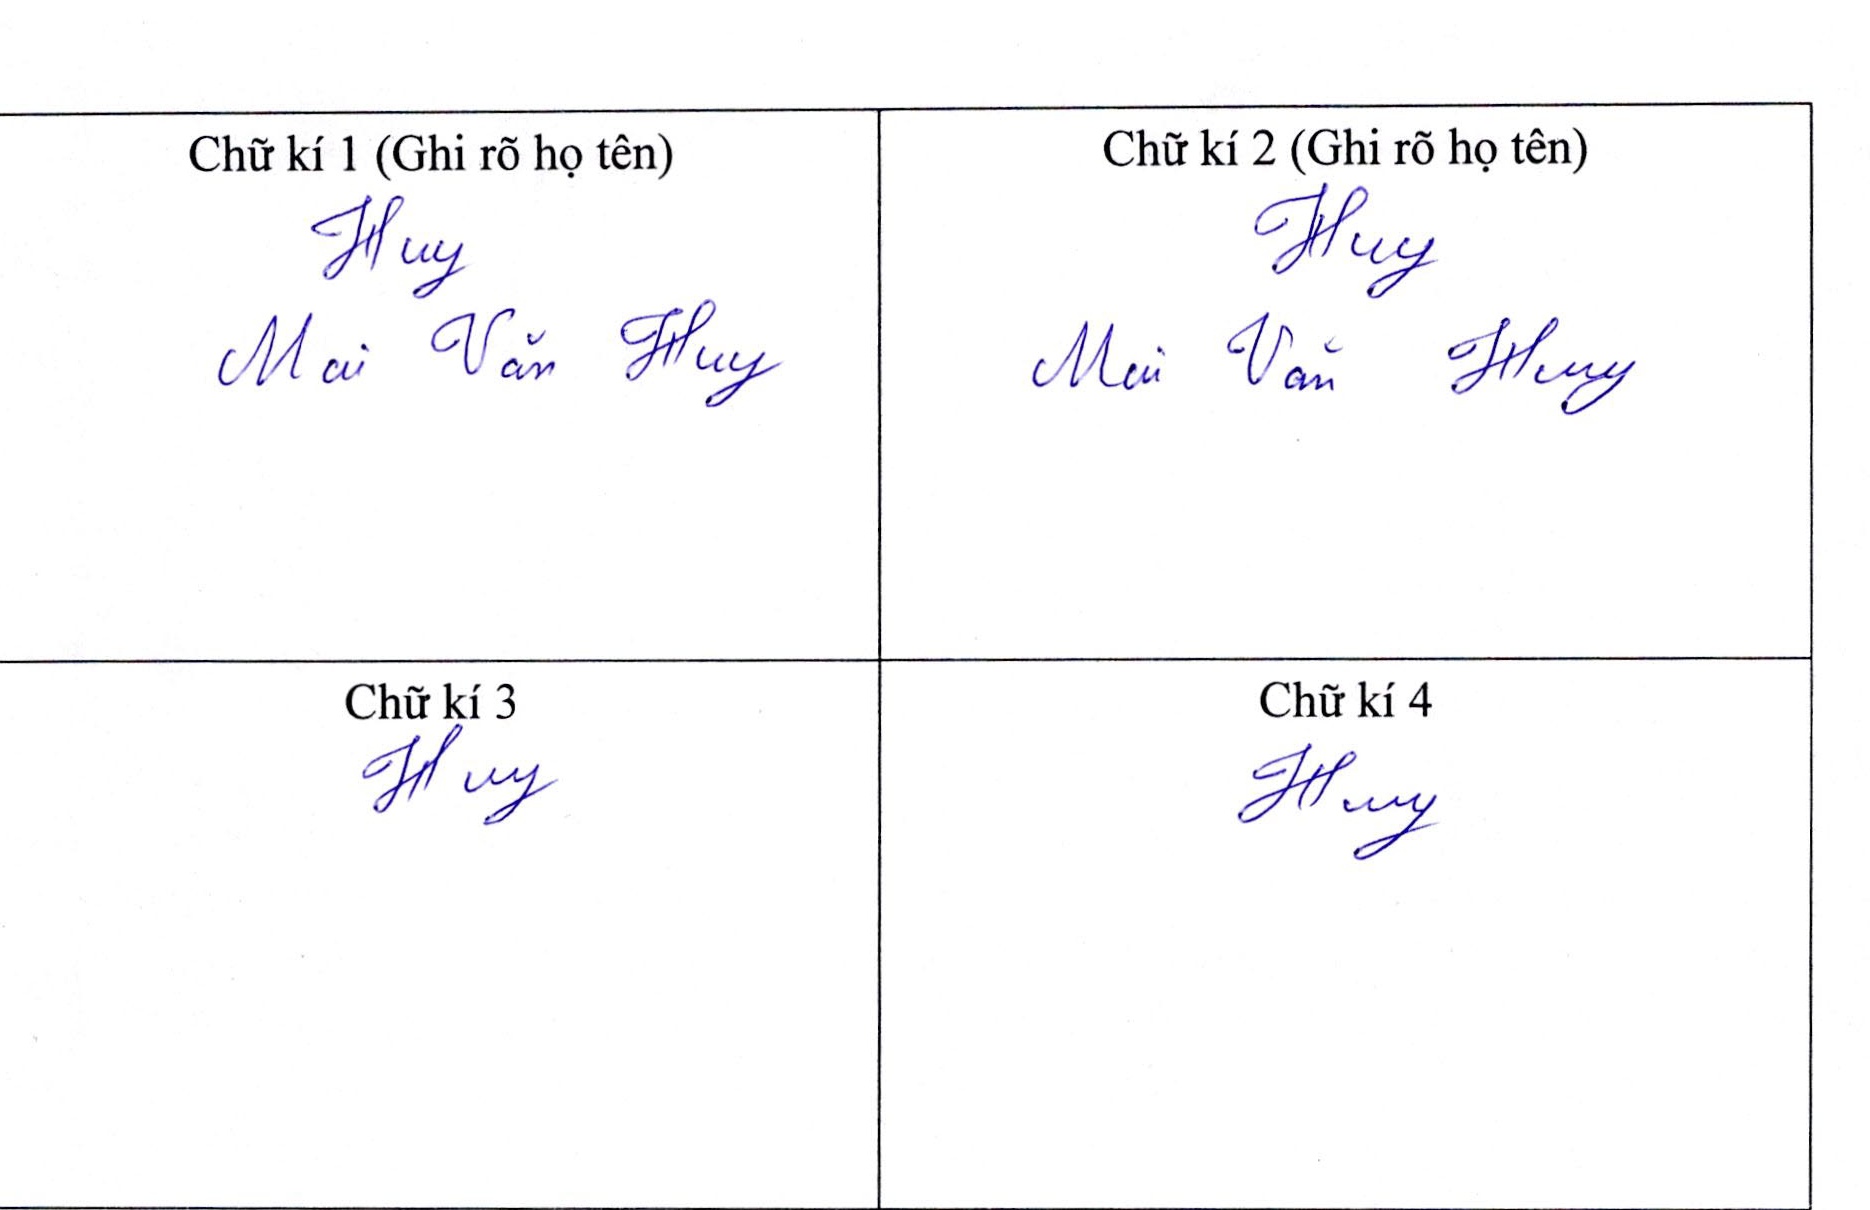 Chữ kí 1 (Ghi rõ họ tên)
Huy
Mai Văn Huy
Chữ kí 2 (Ghi rõ họ tên)
Huy
Mai Văn Huy
Chữ kí 3
Huy
Chữ kí 4
Huy